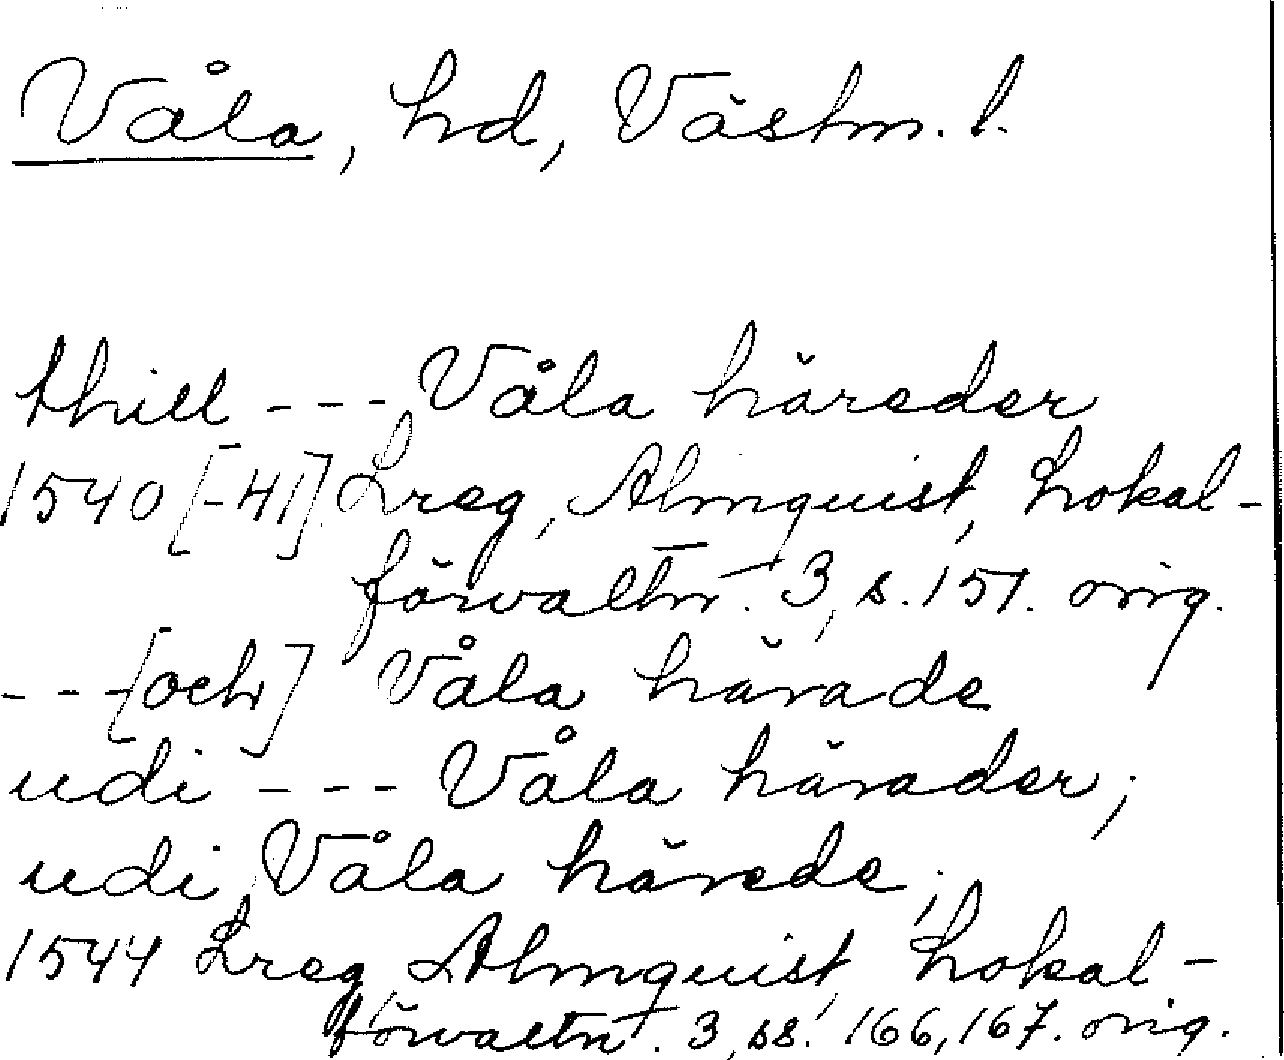 Våla, hd, Västm. l.
thill --- Våla häreder
1540 [-41] Lreg, Almquist, Lokal-
förvaltn. 3, s. 151. orig.
--- [och] Våla härade
udi --- Våla härader;
udi Våla härede;
1544 Lreg, Almquist, Lokal-
förvaltn. 3, ss. 166, 167. orig.